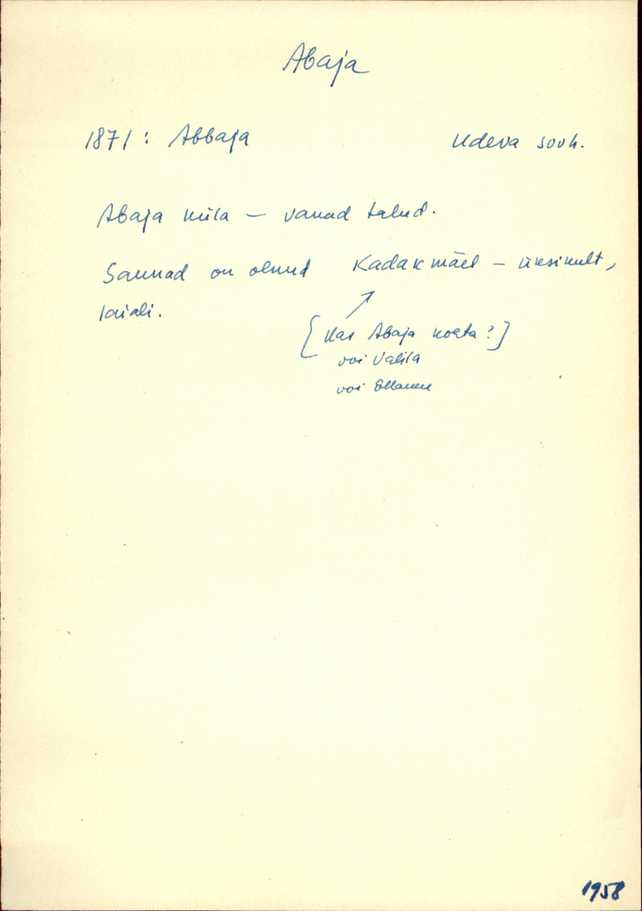 Abaja
1871: Abbaja Udeva sovh.
Abaja küla – vanad talud.
Saunad on olnud Kadakmäel – üksikult,
laiali.
[Kas Abaja kohta?]
või Valila
või
1958